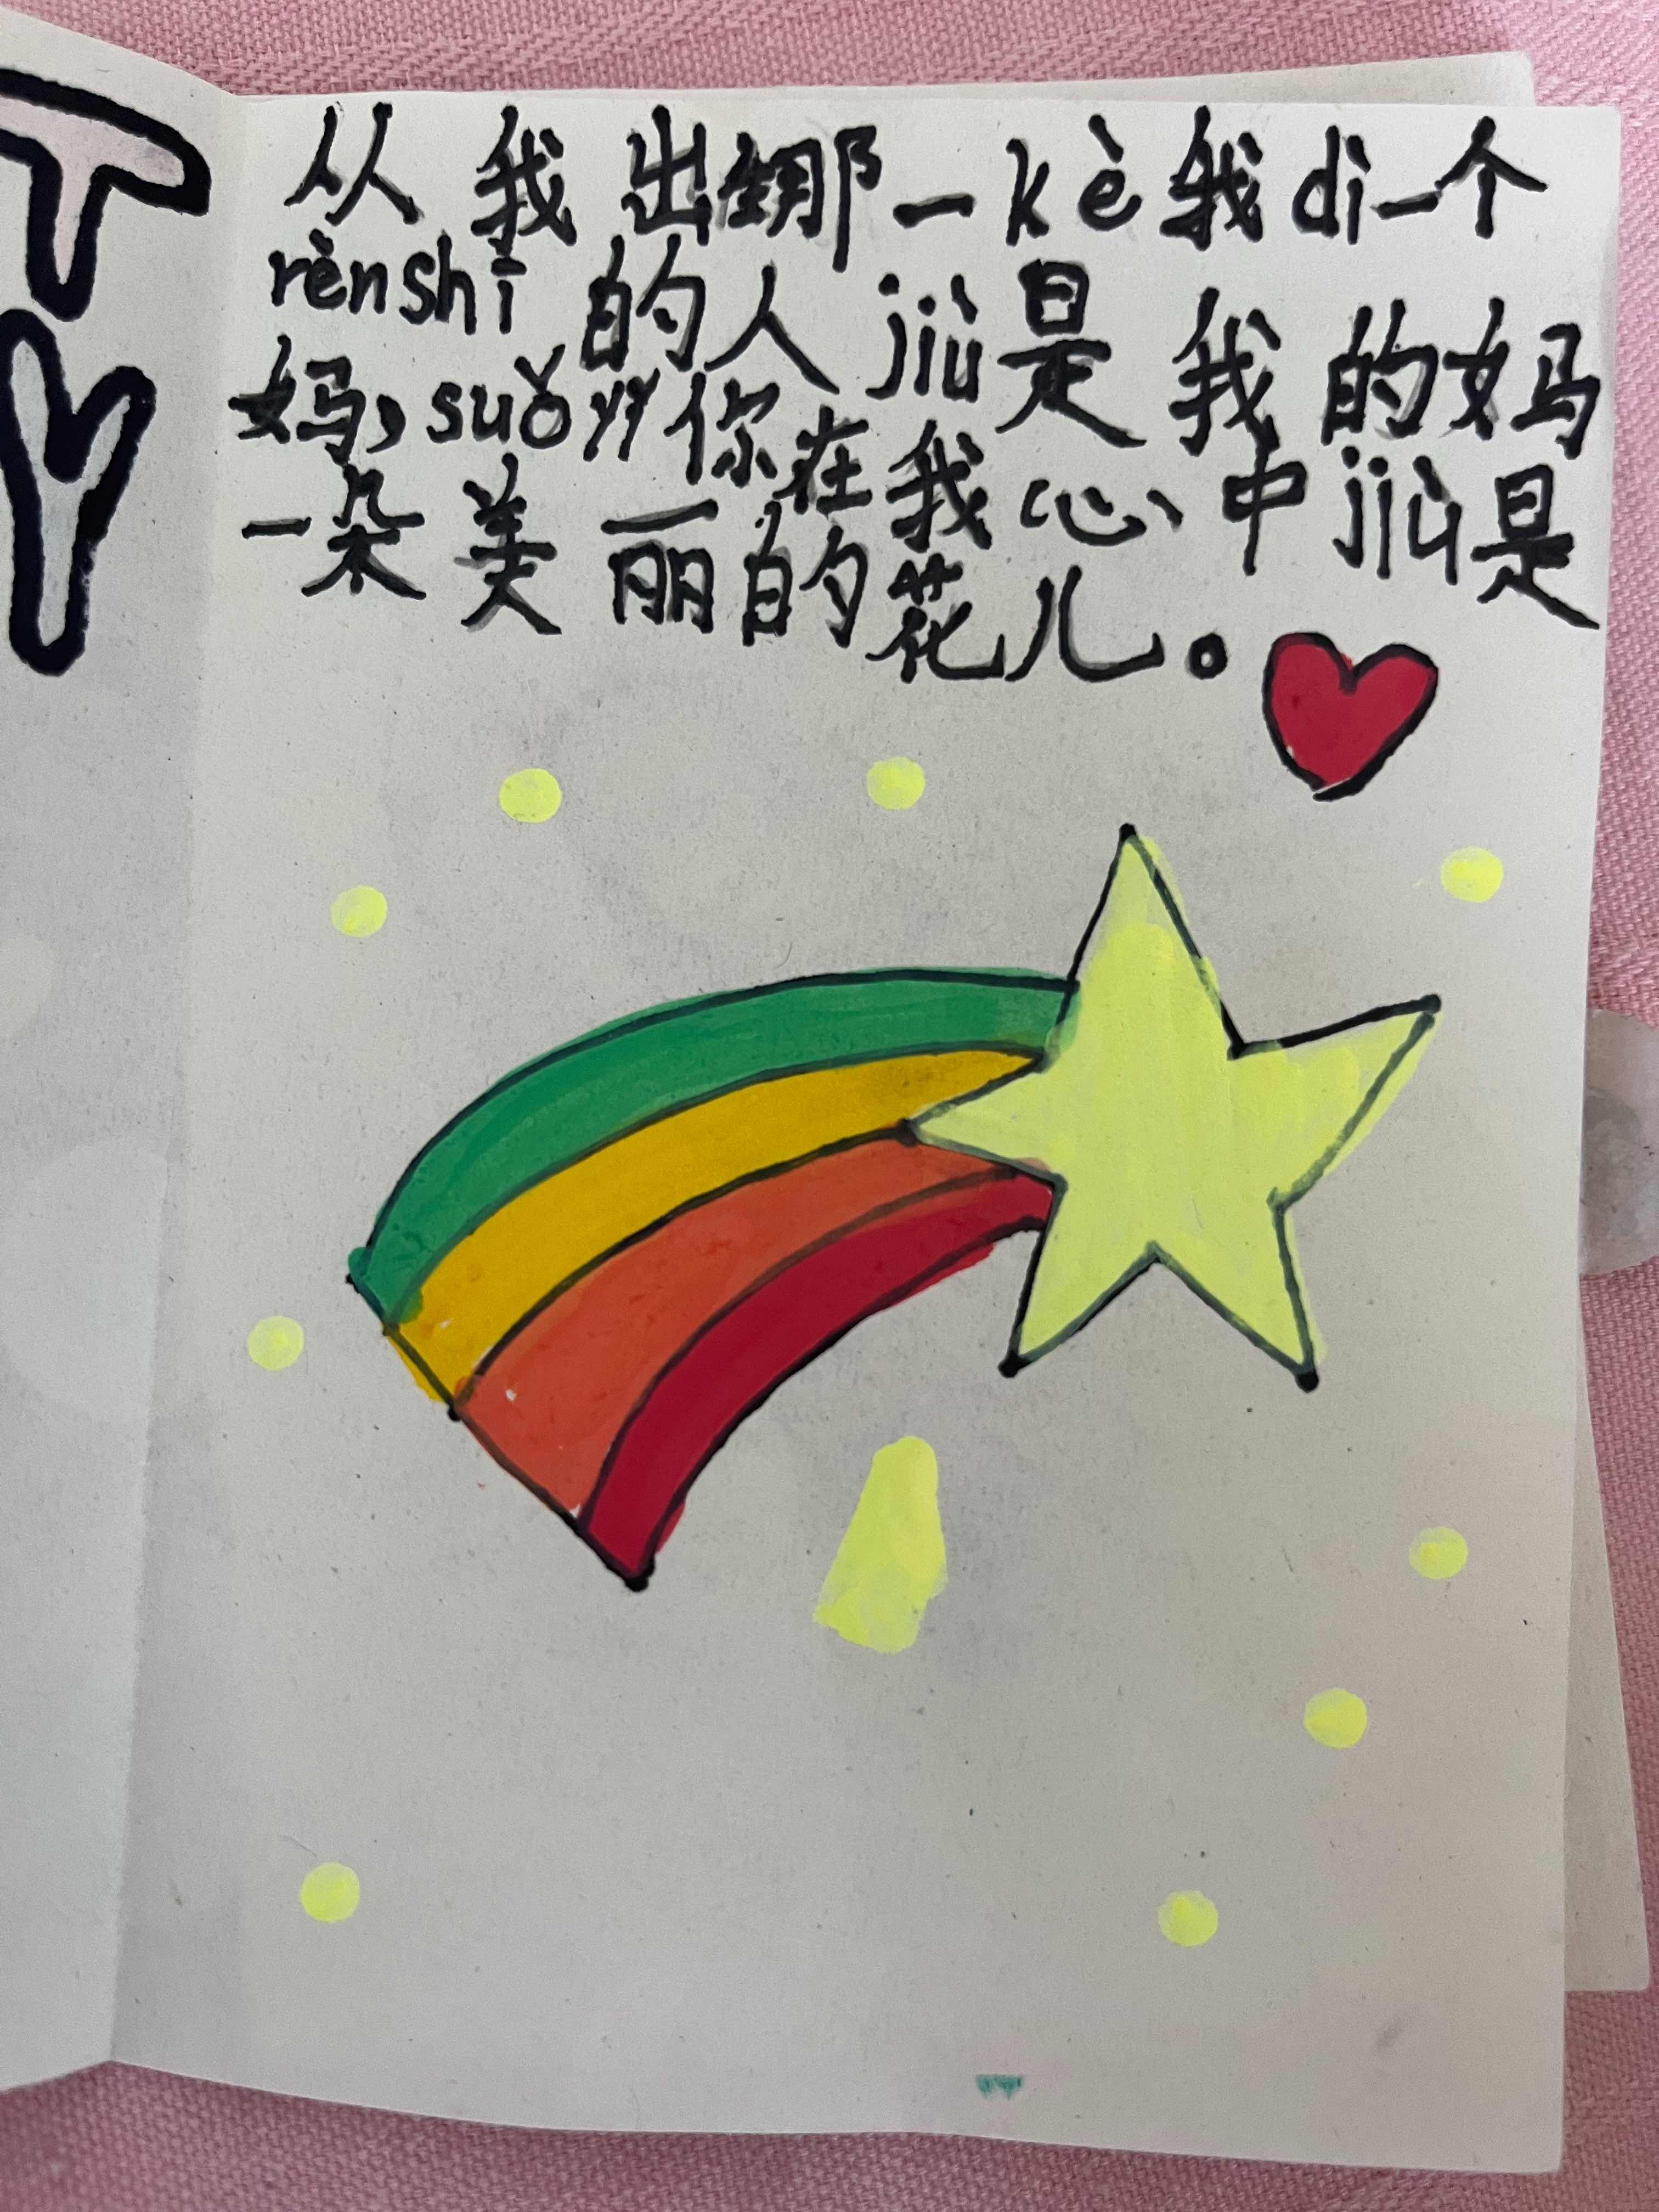 T
Y
从我出生那一kè我dì一个
rènshī的人jiù是我的妈
妈，suǒyǐ你在我心中jiù是
一朵美丽的花儿。